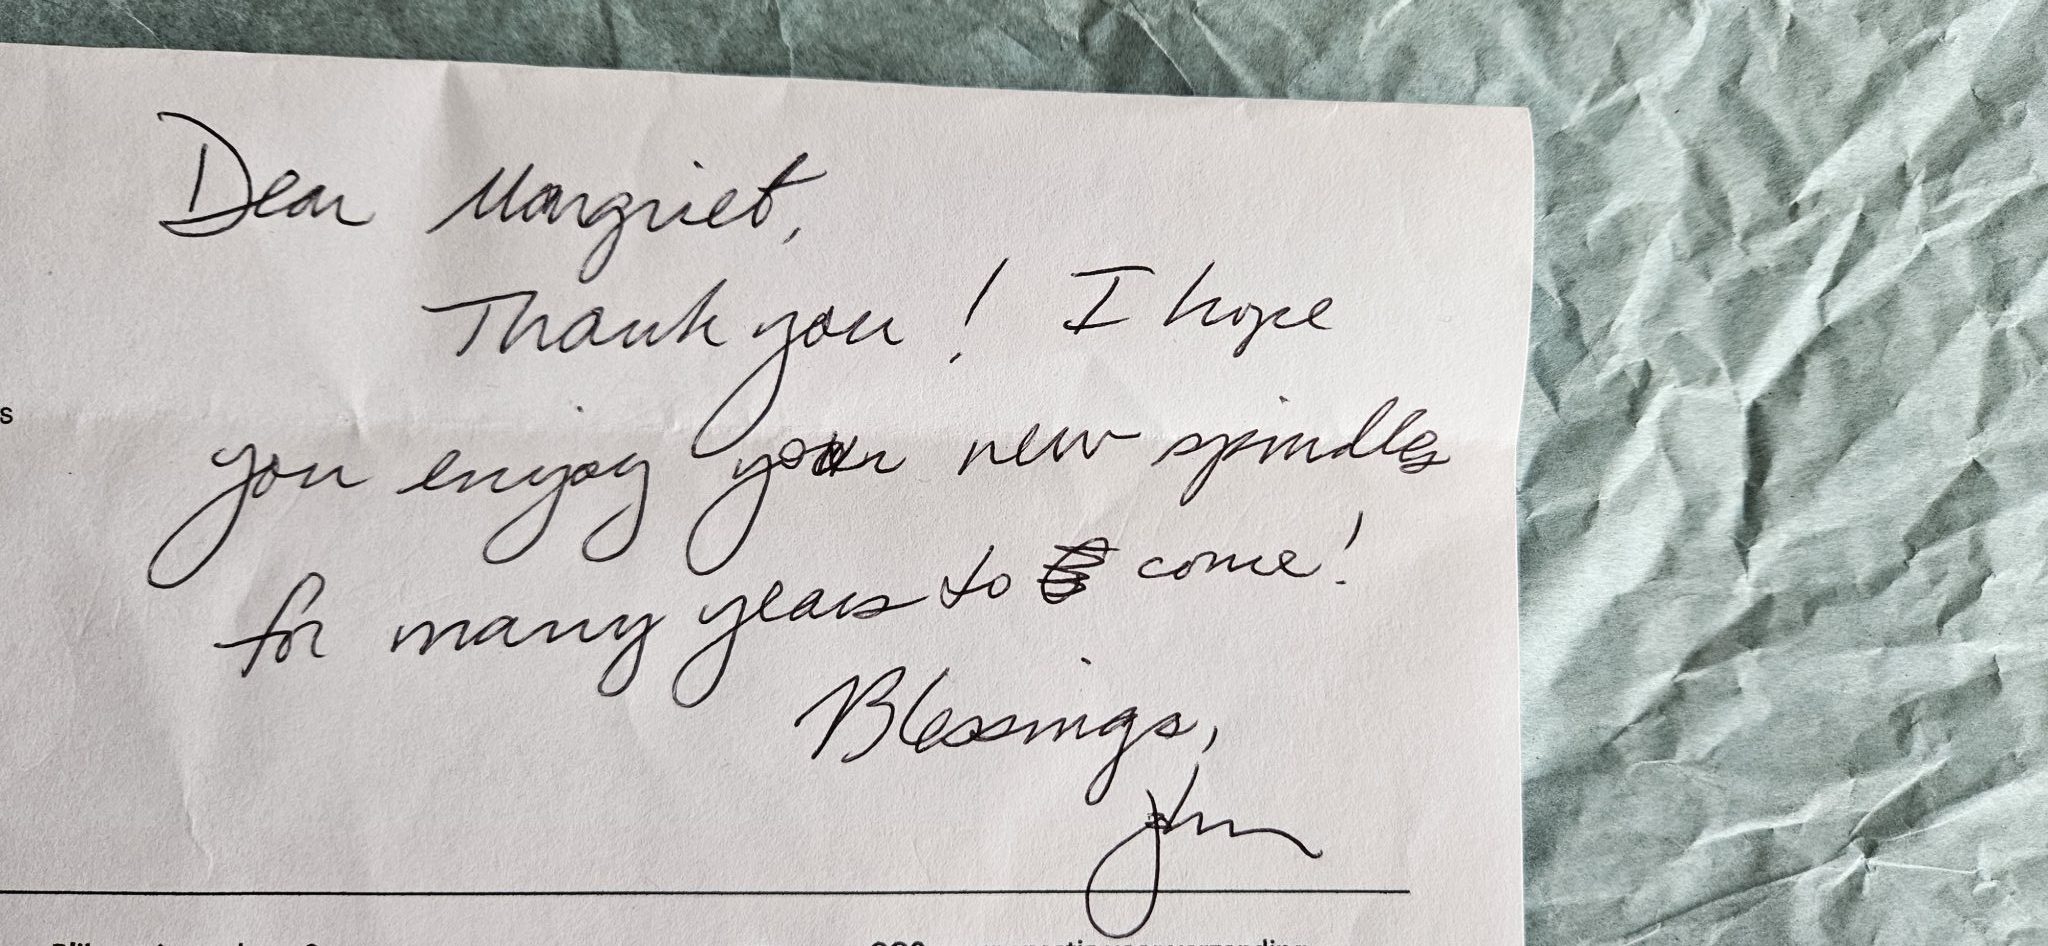 Dear Margriet,
Thank you! I hope
you enjoy your new spindles
for many years to come!
Blessings,
John
s